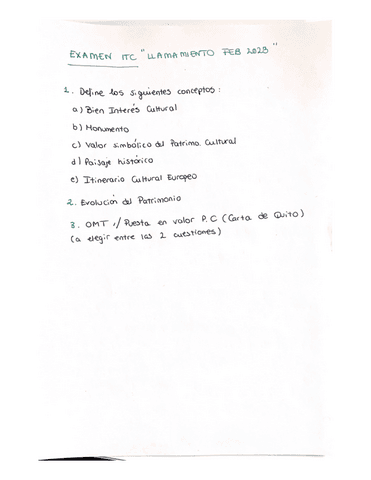 EXAMEN ITC "LLAMAMIENTO FEB 2023"
1. Define los siguientes conceptos:
a) Bien Interés Cultural
b) Monumento
c) Valor simbólico del Patrimo. Cultural
d) Paisaje histórico
e) Itinerario Cultural Europeo
2. Evolución del Patrimonio
3. OMT // Puesta en valor P.C (Carta de Quito)
(a elegir entre las 2 cuestiones)